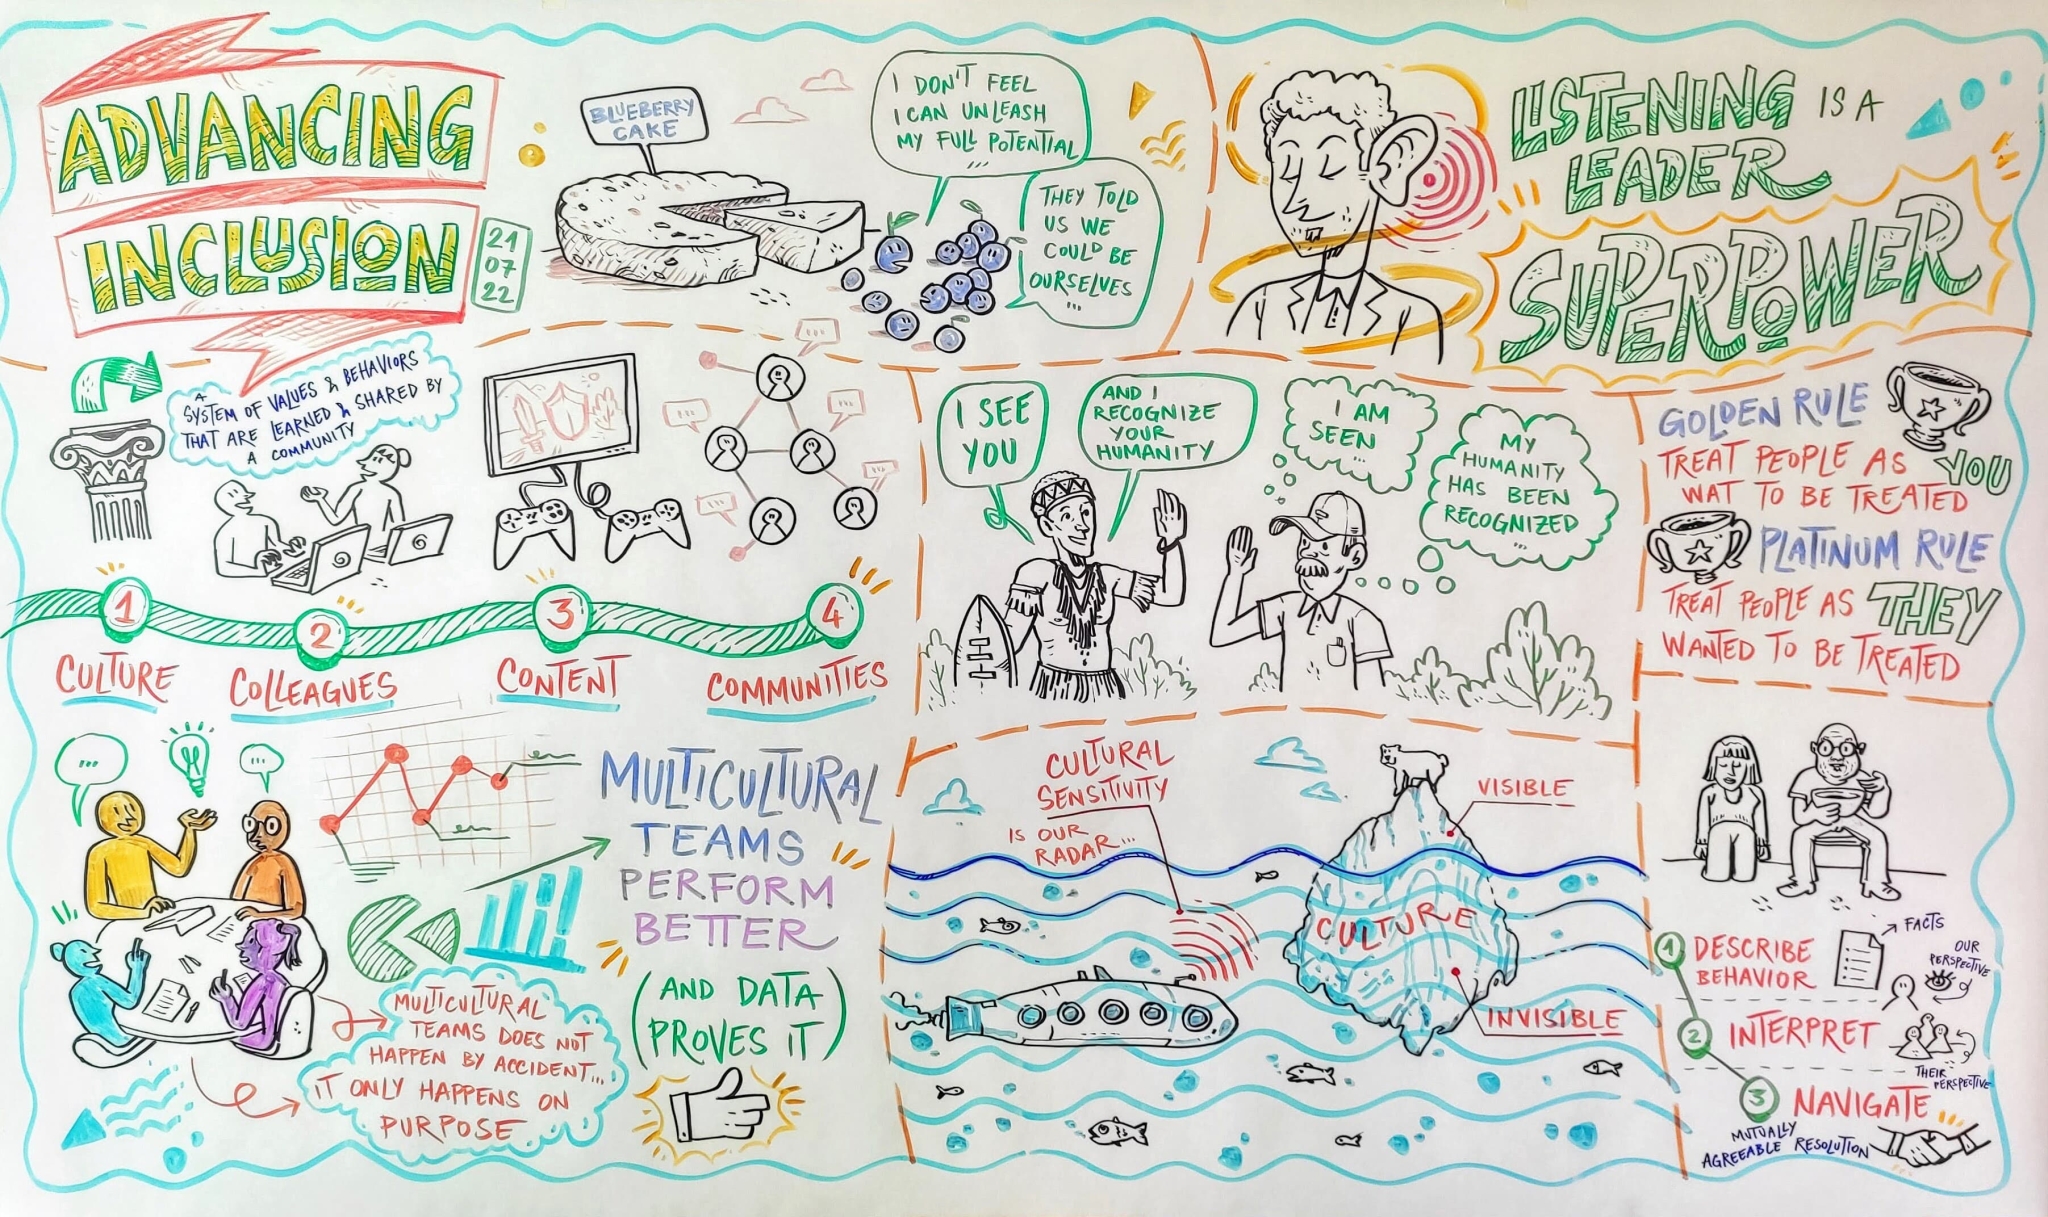 ADVANCING
INCLUSION
21
07
22
BLUEBERRY
CAKE
I DON'T FEEL
I CAN UNLEASH
MY FULL POTENTIAL
...
THEY TOLD
US WE
COULD BE
OURSELVES
...
LISTENING IS A
LEADER
SUPERPOWER
A
SYSTEM OF VALUES & BEHAVIORS
THAT ARE LEARNED & SHARED BY
A COMMUNITY
1
2
3
4
CULTURE
COLLEAGUES
CONTENT
COMMUNITIES
I SEE
YOU
AND I
RECOGNIZE
YOUR
HUMANITY
I AM
SEEN
...
MY
HUMANITY
HAS BEEN
RECOGNIZED
...
GOLDEN RULE
TREAT PEOPLE AS YOU
WAT TO BE TREATED
PLATINUM RULE
TREAT PEOPLE AS THEY
WANTED TO BE TREATED
...
...
MULTICULTURAL
TEAMS
PERFORM
BETTER
(AND DATA
PROVES IT)
MULTICULTURAL
TEAMS DOES NOT
HAPPEN BY ACCIDENT...
IT ONLY HAPPENS ON
PURPOSE
CULTURAL
SENSITIVITY
IS OUR
RADAR...
VISIBLE
CULTURE
INVISIBLE
1 DESCRIBE
BEHAVIOR
FACTS
OUR
PERSPECTIVE
2 INTERPRET
THEIR
PERSPECTIVE
3 NAVIGATE
MUTUALLY
AGREEABLE RESOLUTION